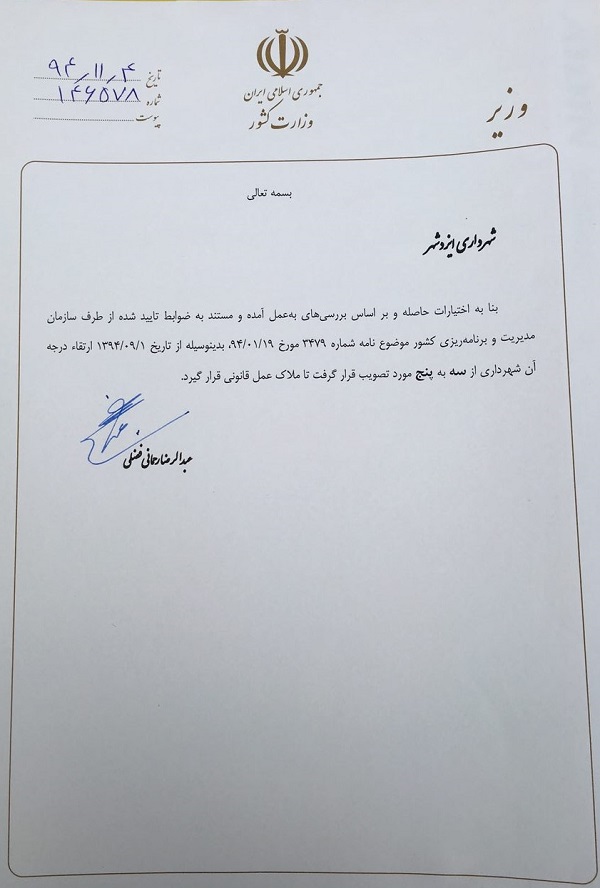 جمهوری اسلامی ایران
وزارت کشور
وزیر
تاریخ ۹۴/۱۱/۴
شماره ۱۴۶۵۷۸
پیوست
بسمه تعالی
شهرداری ایزدشهر
بنا به اختیارات حاصله و بر اساس بررسی‌های به‌عمل آمده و مستند به ضوابط تایید شده از طرف سازمان
مدیریت و برنامه‌ریزی کشور موضوع نامه شماره ۳۴۷۹ مورخ ۹۴/۰۱/۱۹، بدینوسیله از تاریخ ۱۳۹۴/۰۹/۱ ارتقاء درجه
آن شهرداری از سه به پنج مورد تصویب قرار گرفت تا ملاک عمل قانونی قرار گیرد.
عبدالرضا رحمانی فضلی